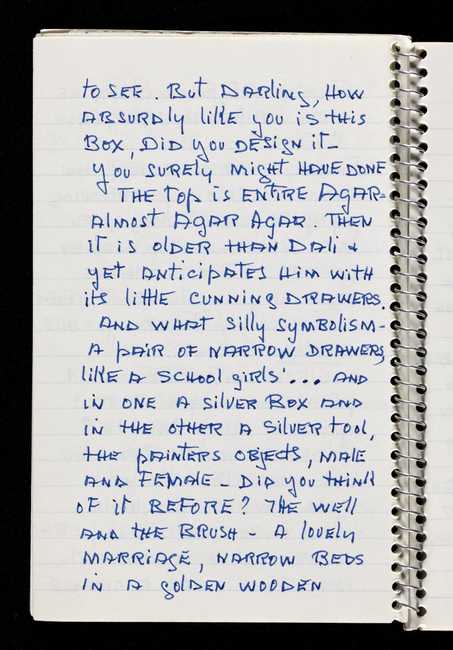 to SEE. But DARling, How
ABSURDLY liKE you is tHis
Box, DiD you DESigN it –
you SURELY Might HAVE DONE
THE Top is ENtiRE AgAR-
Almost AgAR AgAR. THEN
it is OLDER tHAN DAli &
yEt ANticipAtES HiM witH
its little CUNNiNg DRAWERS.
AND WHAt silly Symbolism –
A pAiR of NARROW DRAWERS,
liKE A SCHool giRls'... AND
iN oNE A silvER Box AND
iN tHE otHER A silvER tool,
tHE pAiNtERS oBjEcts, MAlE
AND FEMAlE – DiD you tHiNK
oF it BEFoRE? THE WEll
AND tHE BRUSH – A lovEly
MARRiAgE, NARRow BEDS
iN A goldEN woodEN